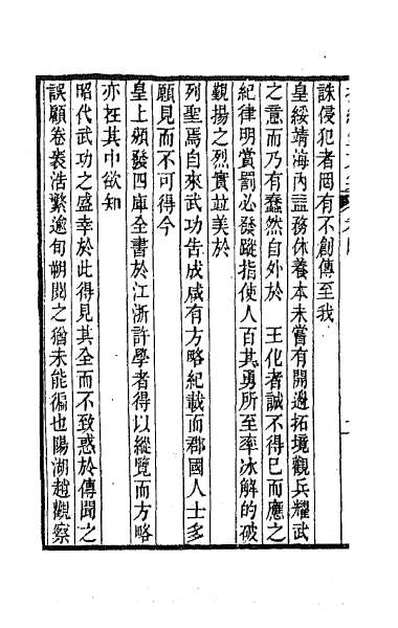 誅侵犯者罔有不創傳至我
皇綏靖海內益務休養本未嘗有開邊拓境觀兵耀武
之意而乃有蠢然自外於 王化者誠不得已而應之
紀律明賞罰必發蹤指使人百其勇所至率冰解的破
觀揚之烈實竝美於
列聖焉自來武功告成咸有方略紀載而郡國人士多
願見而不可得今
皇上頒發四庫全書於江浙許學者得以縱覽而方略
亦在其中欲知
昭代武功之盛幸於此得見其全而不致惑於傳聞之
誤顧卷袠浩繁逾旬朔閱之猶未能徧也陽湖趙觀察